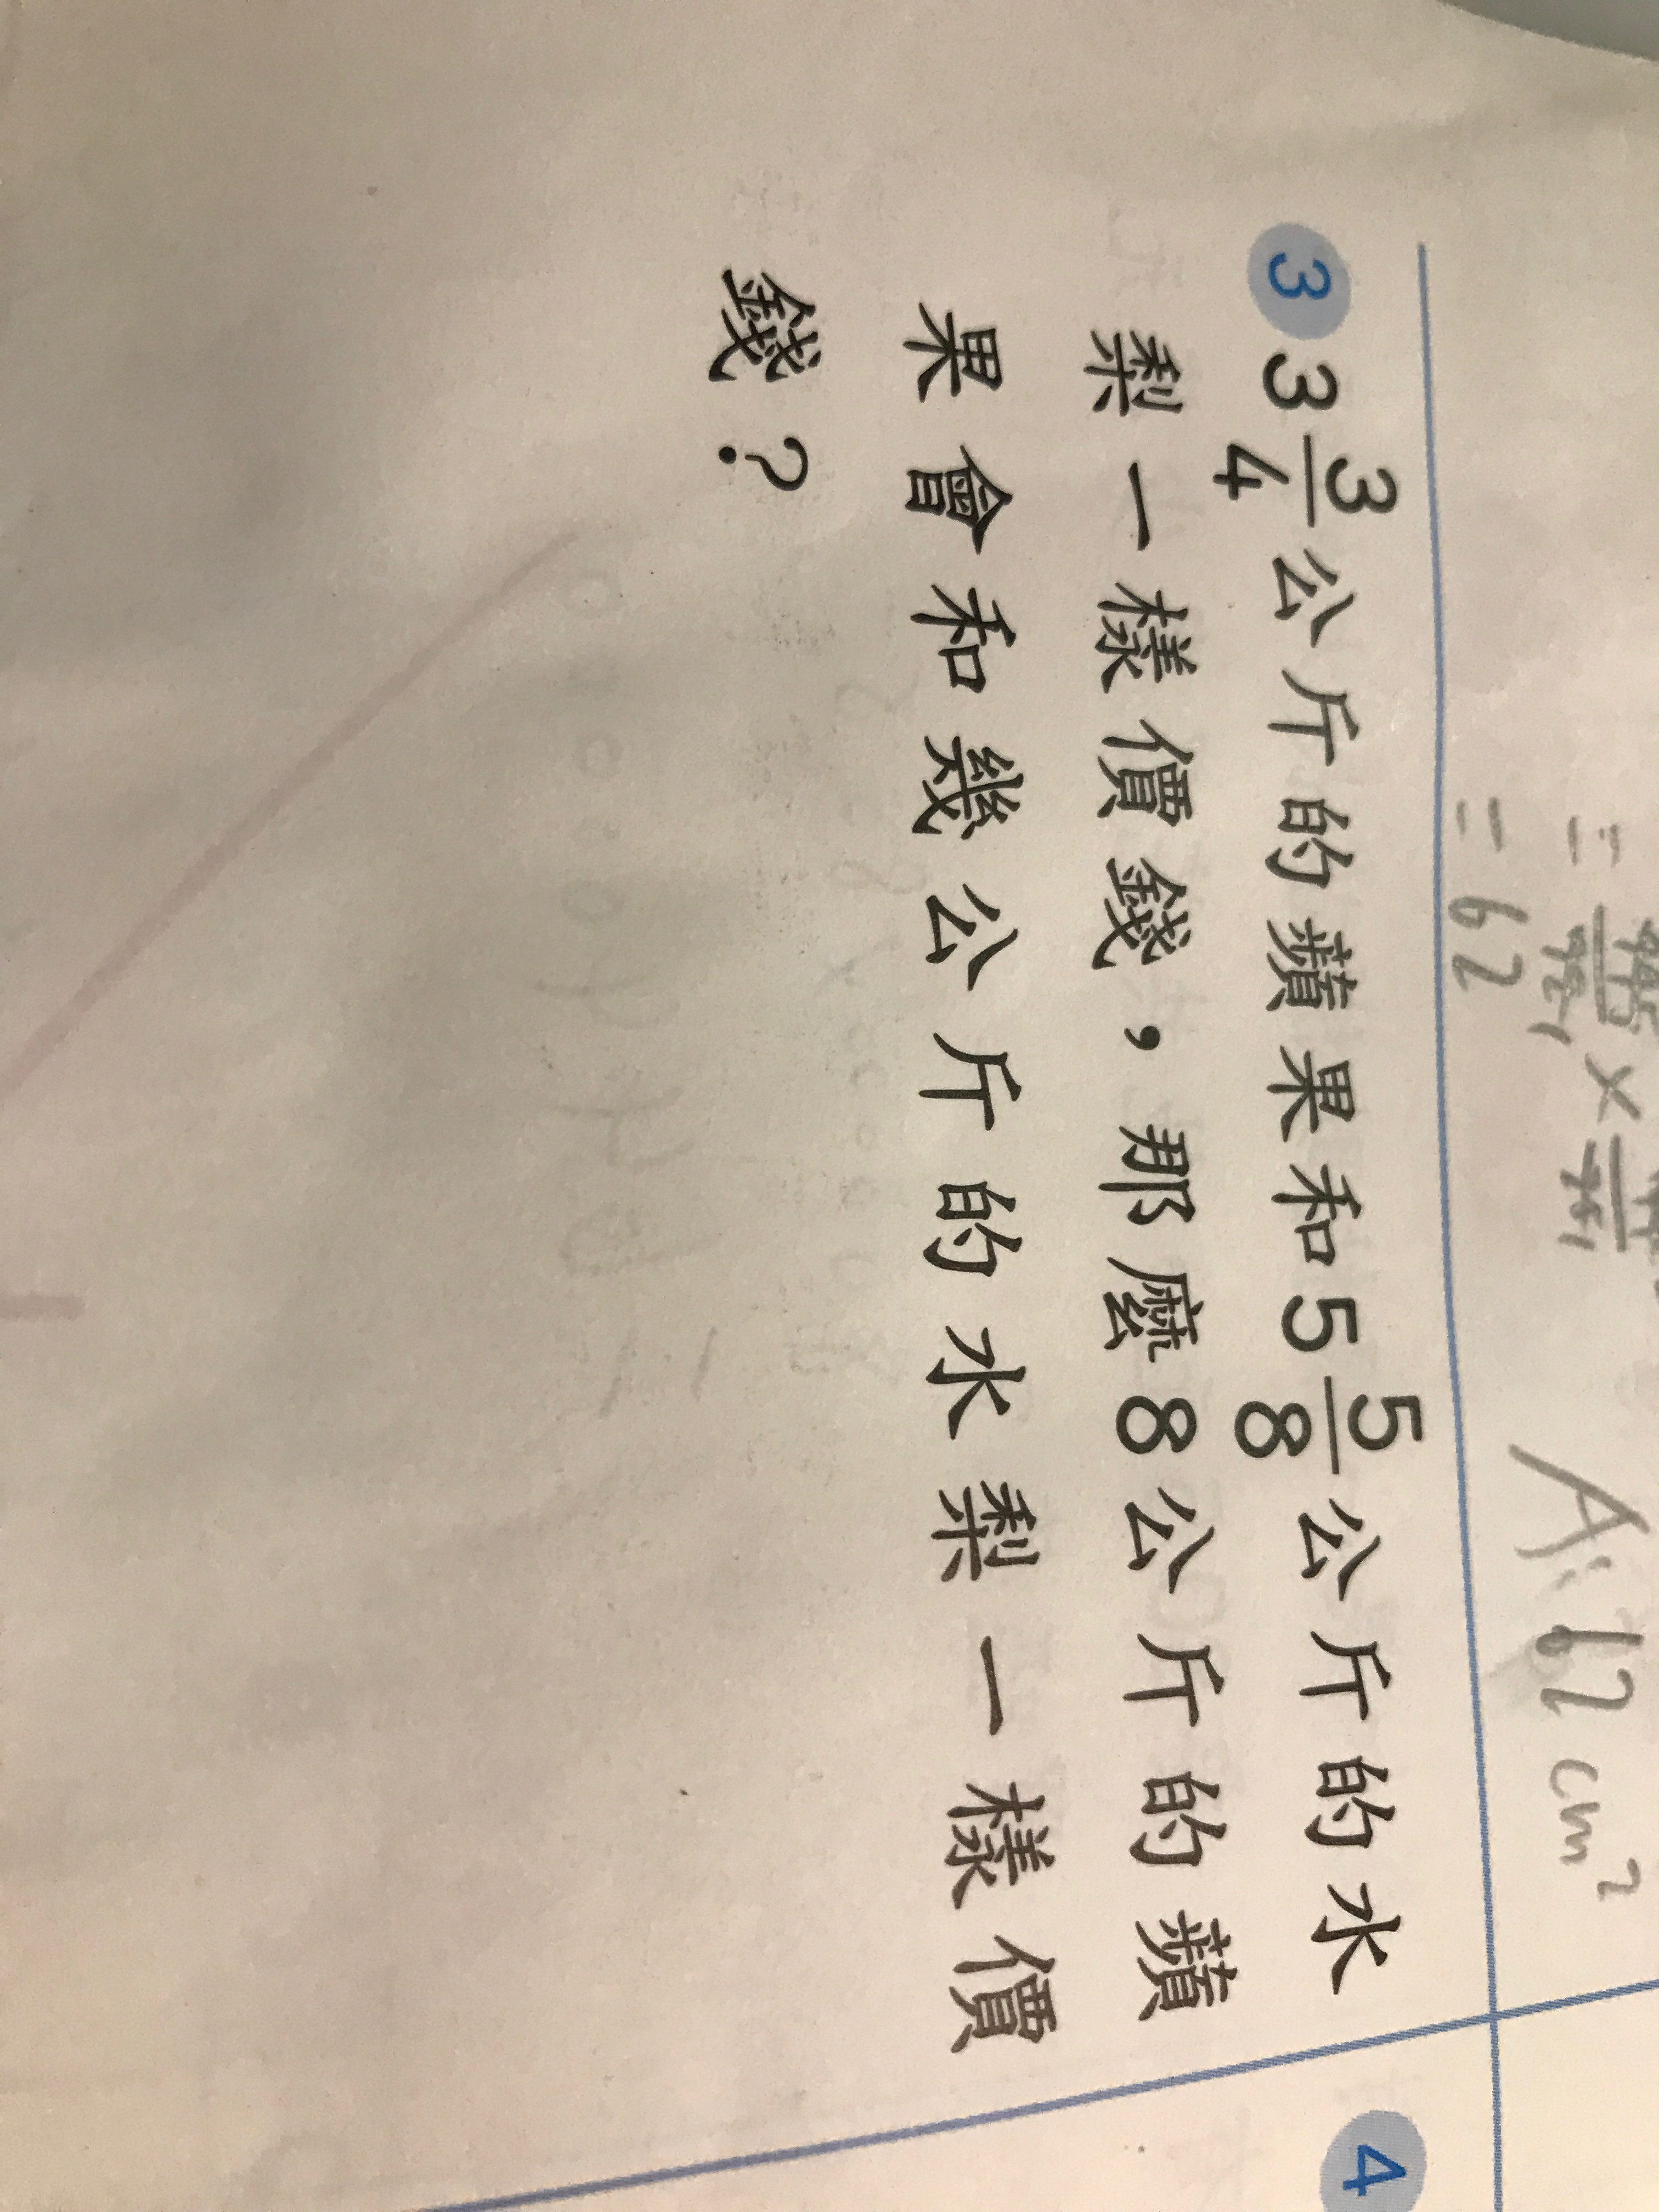 = 62
A: 62 cm²
3 3 3/4 公斤的蘋果和 5 5/8 公斤的水
梨一樣價錢，那麼8公斤的蘋
果會和幾公斤的水梨一樣價
錢？
4